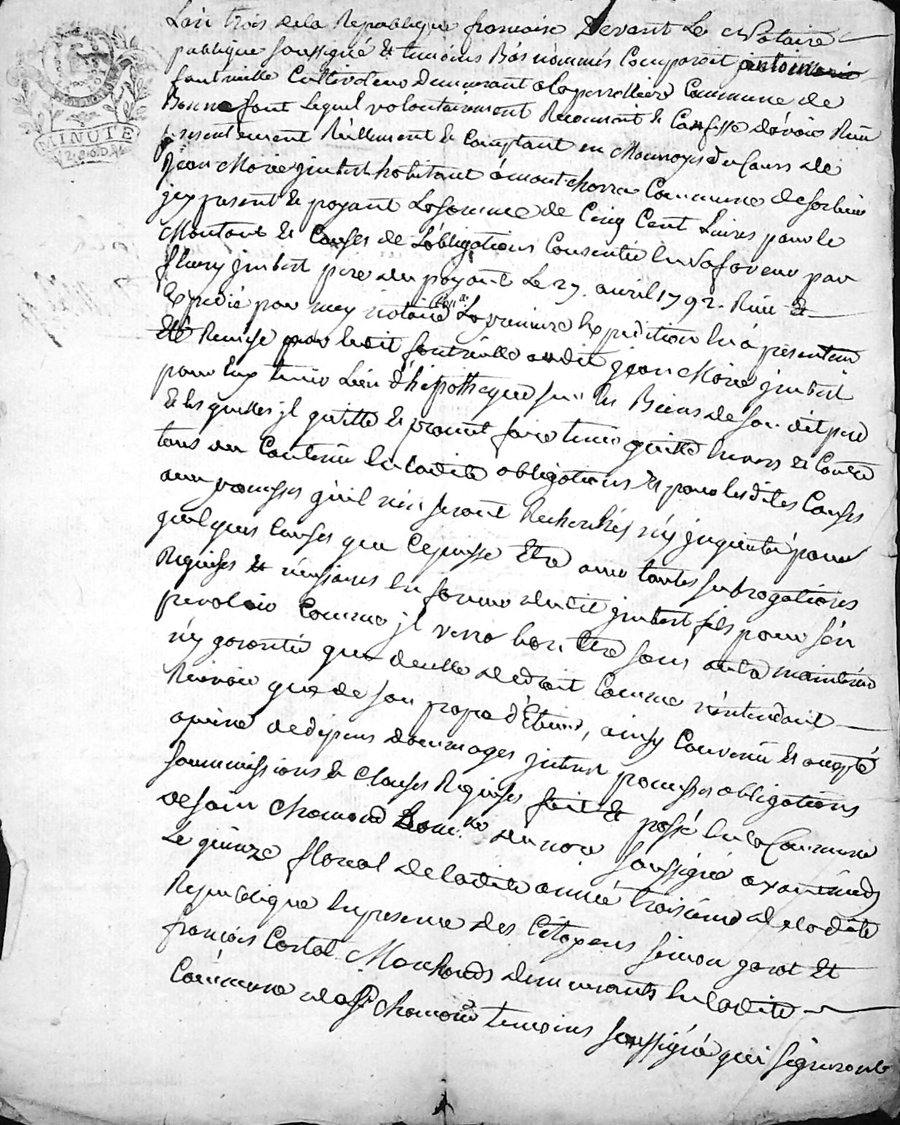 L'an trois de la Republique francaise Devant Le Notaire
publique soussigné & temoins Bas nommés Comparoit antoine
fontvieille Cultivateur demeurant a laperrotiere Commune de
Bonnefont Lequel volontairement Reconnoit & Confesse d'avoir Receu
presentement Reellement & Comptant en Monnoye du Cours de
Jean Marie jmbert habitant à montchorra Commune de sorbier
jcy present & payant La somme de Cinq Cent Livres pour le
Montant & Causes de L'obligations Consentie En Sa faveur par
fleury jmbert pere du payant Le 27. avril 1792. Receu &
Expedié par moy notaire La premiere Expedition lui à presentem
Eté Remise par ledit fontvieille audit jean Marie jmbert
pour Luy tenir Lieu d'hipotheque sur les Biens de son dit pere
& lesquelles jl quitte & promet faire tenir quitte Envers & Contre
tous du Contenu En ladite obligations & pour lesdites Causes
aux promesses qu'il n'en seront Recherchés n'y jnquieté pour
quelques Causes que Ce puisse Etre avec toutes subrogations
Requises & necessaires En faveur dudit jmbert fils pour s'en
prevaloir Comme jl verra bon Etre sans autre maintenue
n'y garantie que de celle de droit Comme n'entendant
Recevoir que de son propre d'Ebiteur, ainsy Convenu & accepté
a peine de depens dommages jnterest promesses obligations
soummissions & Clauses Requises fait & passé En la Commune
de saint Chamond Dom.lle du not.re soussigné avant midy
Le quinze floreal de ladite année troisieme de ladite
Republique En presence des Citoyens simon garat &
françois Costal Marchands demeurants En ladite
Commune de St Chamond temoins soussigné qui signeront
MINUTE